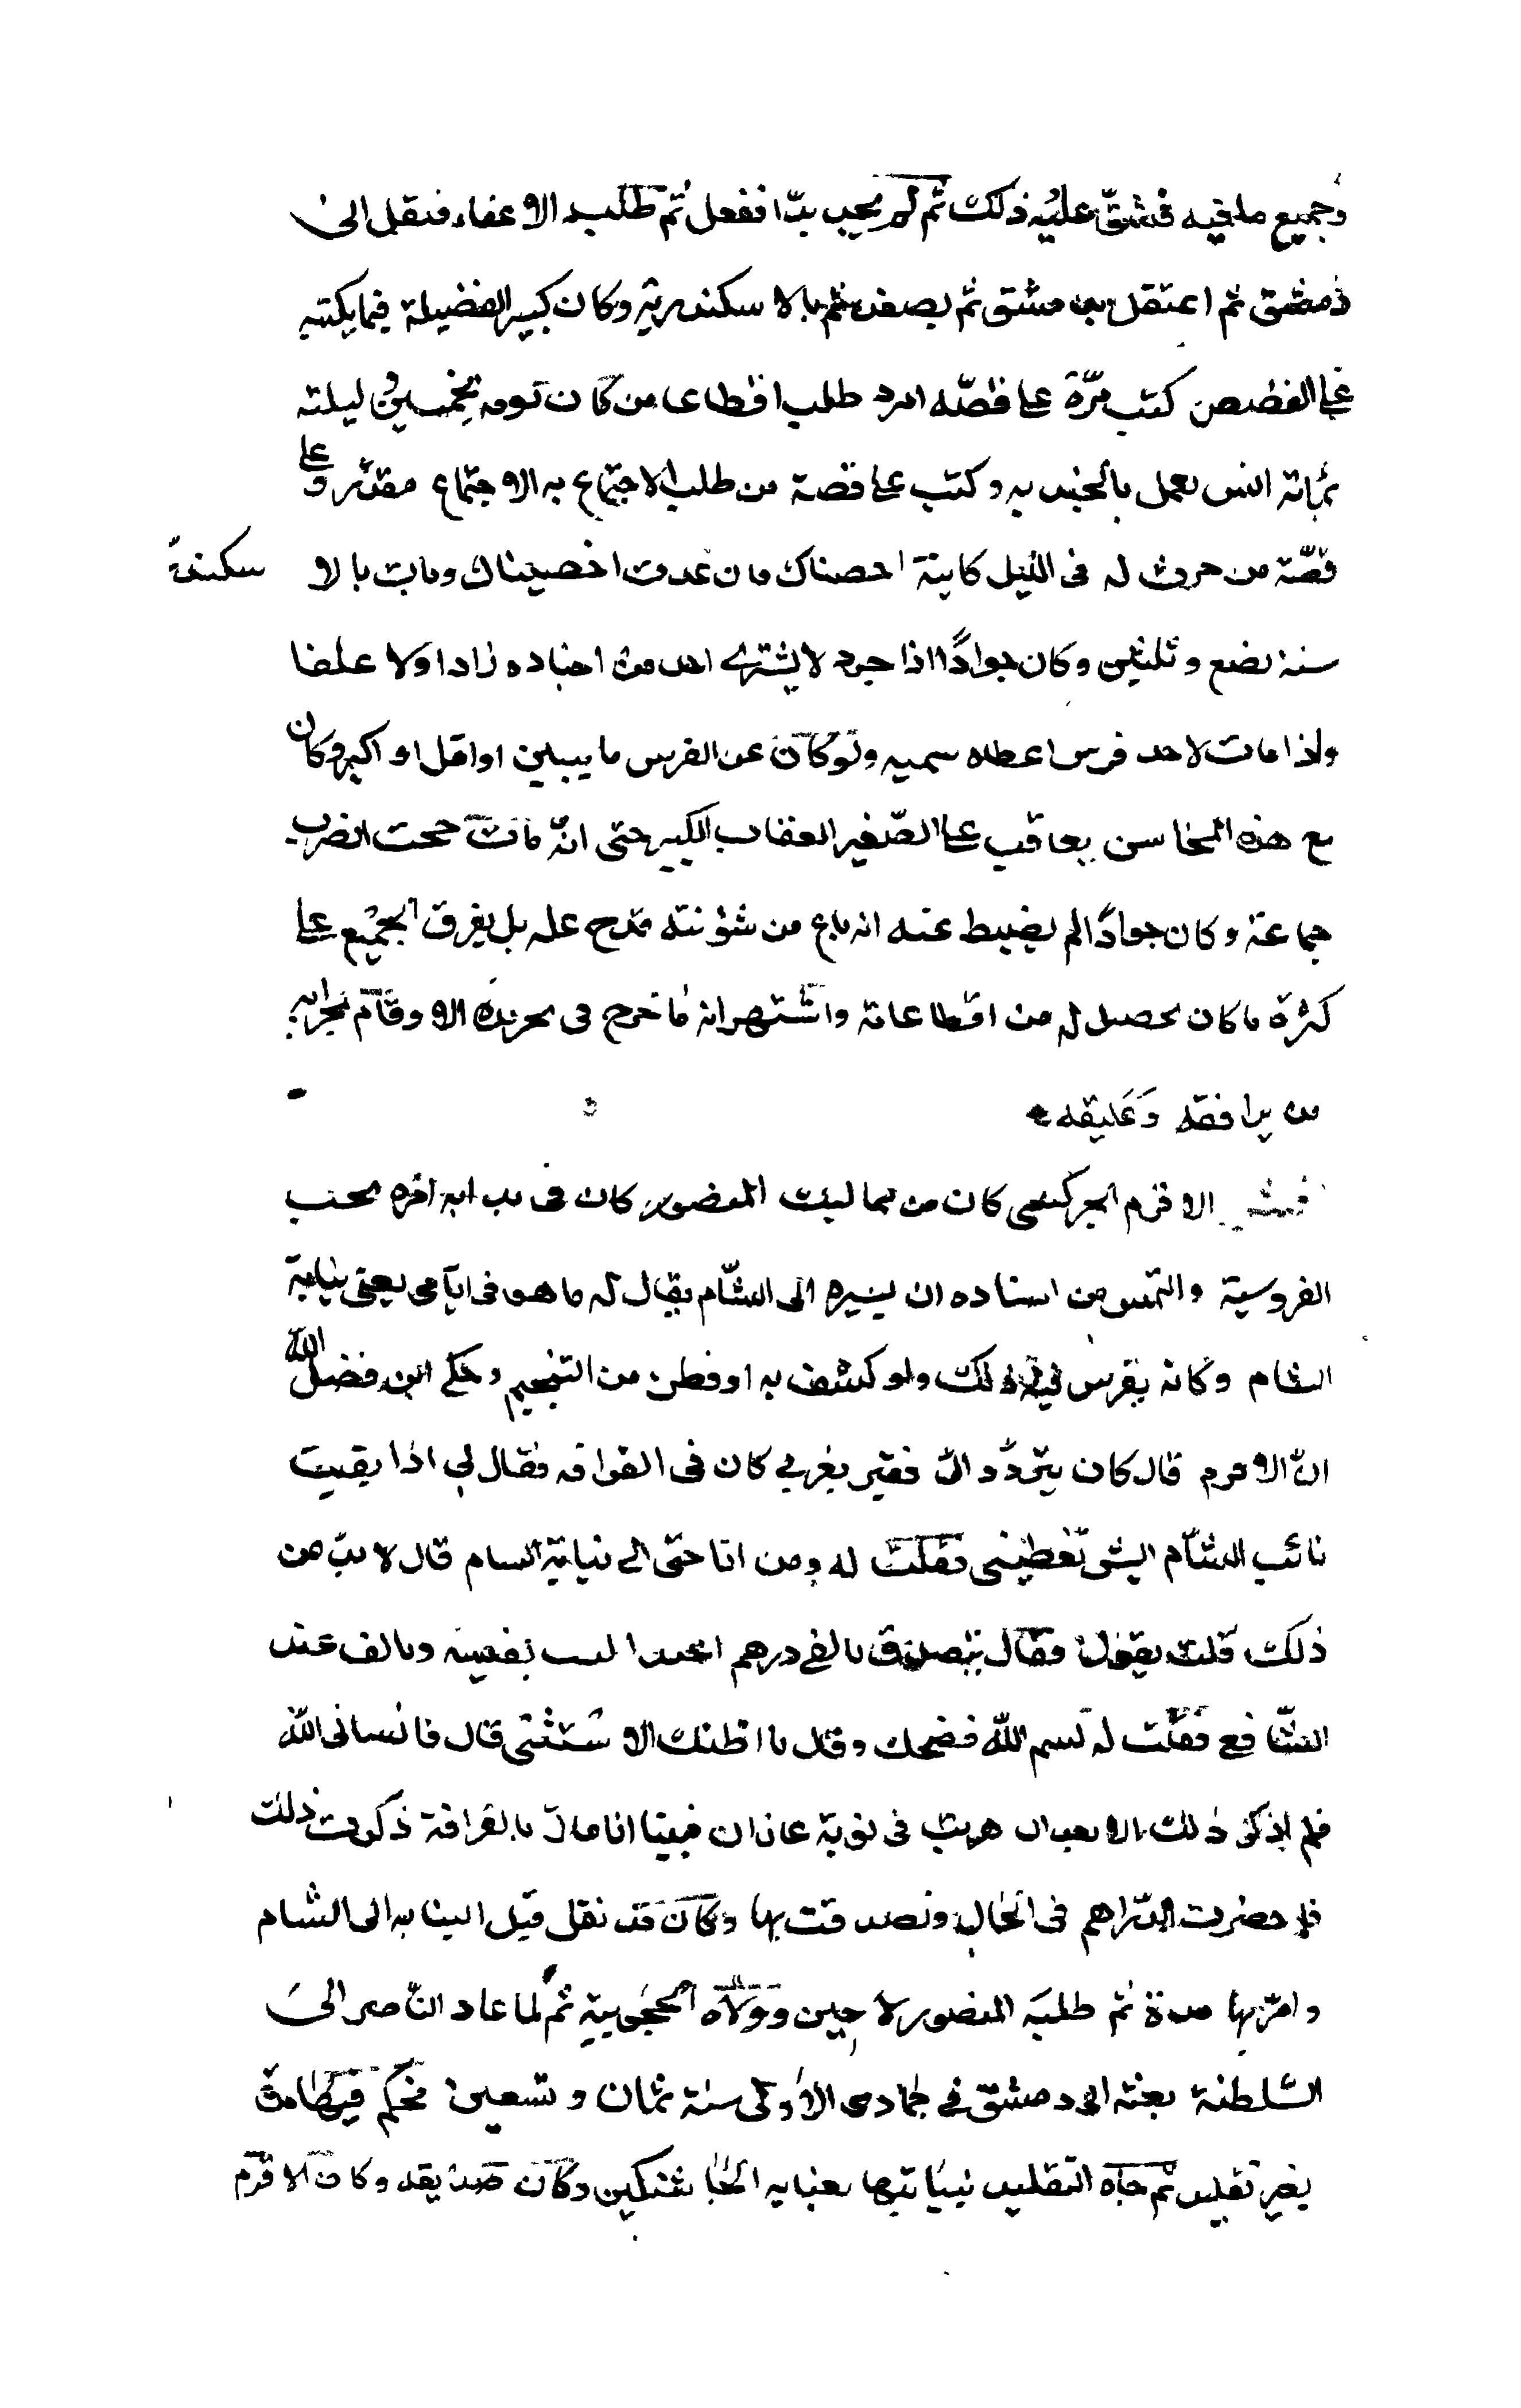 وجميع ما فيه فشقّ عليه ذلك ثم لم يجب بدّا ففعل ثم طلب الاعفاء فنقل الى
دمشق ثم اعتقل بدمشق ثم بصفد ثم بالاسكندرية وكان كبير الفضيلة فيما يكتبه
على القصص كتب مرّة على قصّه امرد طلب اقطاعا من كان يومه بخمسين وليلته
بمائة ايش يعمل بالجنديه وكتب على قصة من طلب الاجتماع به الاجتماع مقدر وعلى
قصّة من جرت له فى الليل كاينة احصناك فان عدت اخصيناك ومات بالاسكندرية
سنة بضع وثلثين وكان جوادًا اذا جرد لا يشترى احد من اجناده زادا ولا علفا
واذا مات لاحد فرس اعطاه سميه ولو كان عن الفرس ما يبلين او اقل او اكبر وكان
مع هذه المحاسن يعاقب على الصّغير العقاب الكبير حتى انّه مات تحت الضرب
جماعة وكان جوادًا لم يضبط عنه انه باع من شؤنته قدح غله بل يفرق الجميع على
كثرة ما كان يحصل له من اقطاعاته واشتهر انه ما خرج فى تجريده الا وقام بجرايه
من يرافقه وعليقه
الاقرم الجركسى كان من مماليك المنصور كان فى مبدا امره يحب
الفروسية والتمس من استاده ان يسيره الى الشّام فقال له ما هو فى ايّامى يعنى نيابة
الشام وكانه تفرس فيه ذلك ولو كشف به او فطن من التنجيم وحكى ابن فضل الله
انّ الاقرم قال كان يتردّد الىّ فقير مغربي كان فى القرافه فقال لي اذا بقيت
نائب الشّام ايش تعطينى فقلت له ومن انا حتى الى نيابة الشام قال لا بدّ من
ذلك قلت فقول فقال تتصدق بالف درهم عند الست نفيسه وبالف عند
الشّافع فقلت له بسم اللّه فضحك وقال ما اظنك الا ستنسى قال فانسانى اللّه
فلم اذكر ذلك الا بعد ان هربت فى نوبة غازان فبينا انا مارّ بالقرافة ذكرت ذلك
فاحضرت الدّراهم فى الحال وتصدقت بها وكان قد نقل قبل النيابه الى الشام
وامرّ بها مدة ثم طلبه المنصور لاجين وولاّه الحجوبية ثم لما عاد النّاصر الى
السّلطنة بعثه الى دمشق في جمادى الاولى سنة ثمان وتسعين فحكم فيها مدة
بغير تقليد ثم جاه التقليد بنيابتها بعنايه الجاشنكير وكان صديقه وكان الاقرم